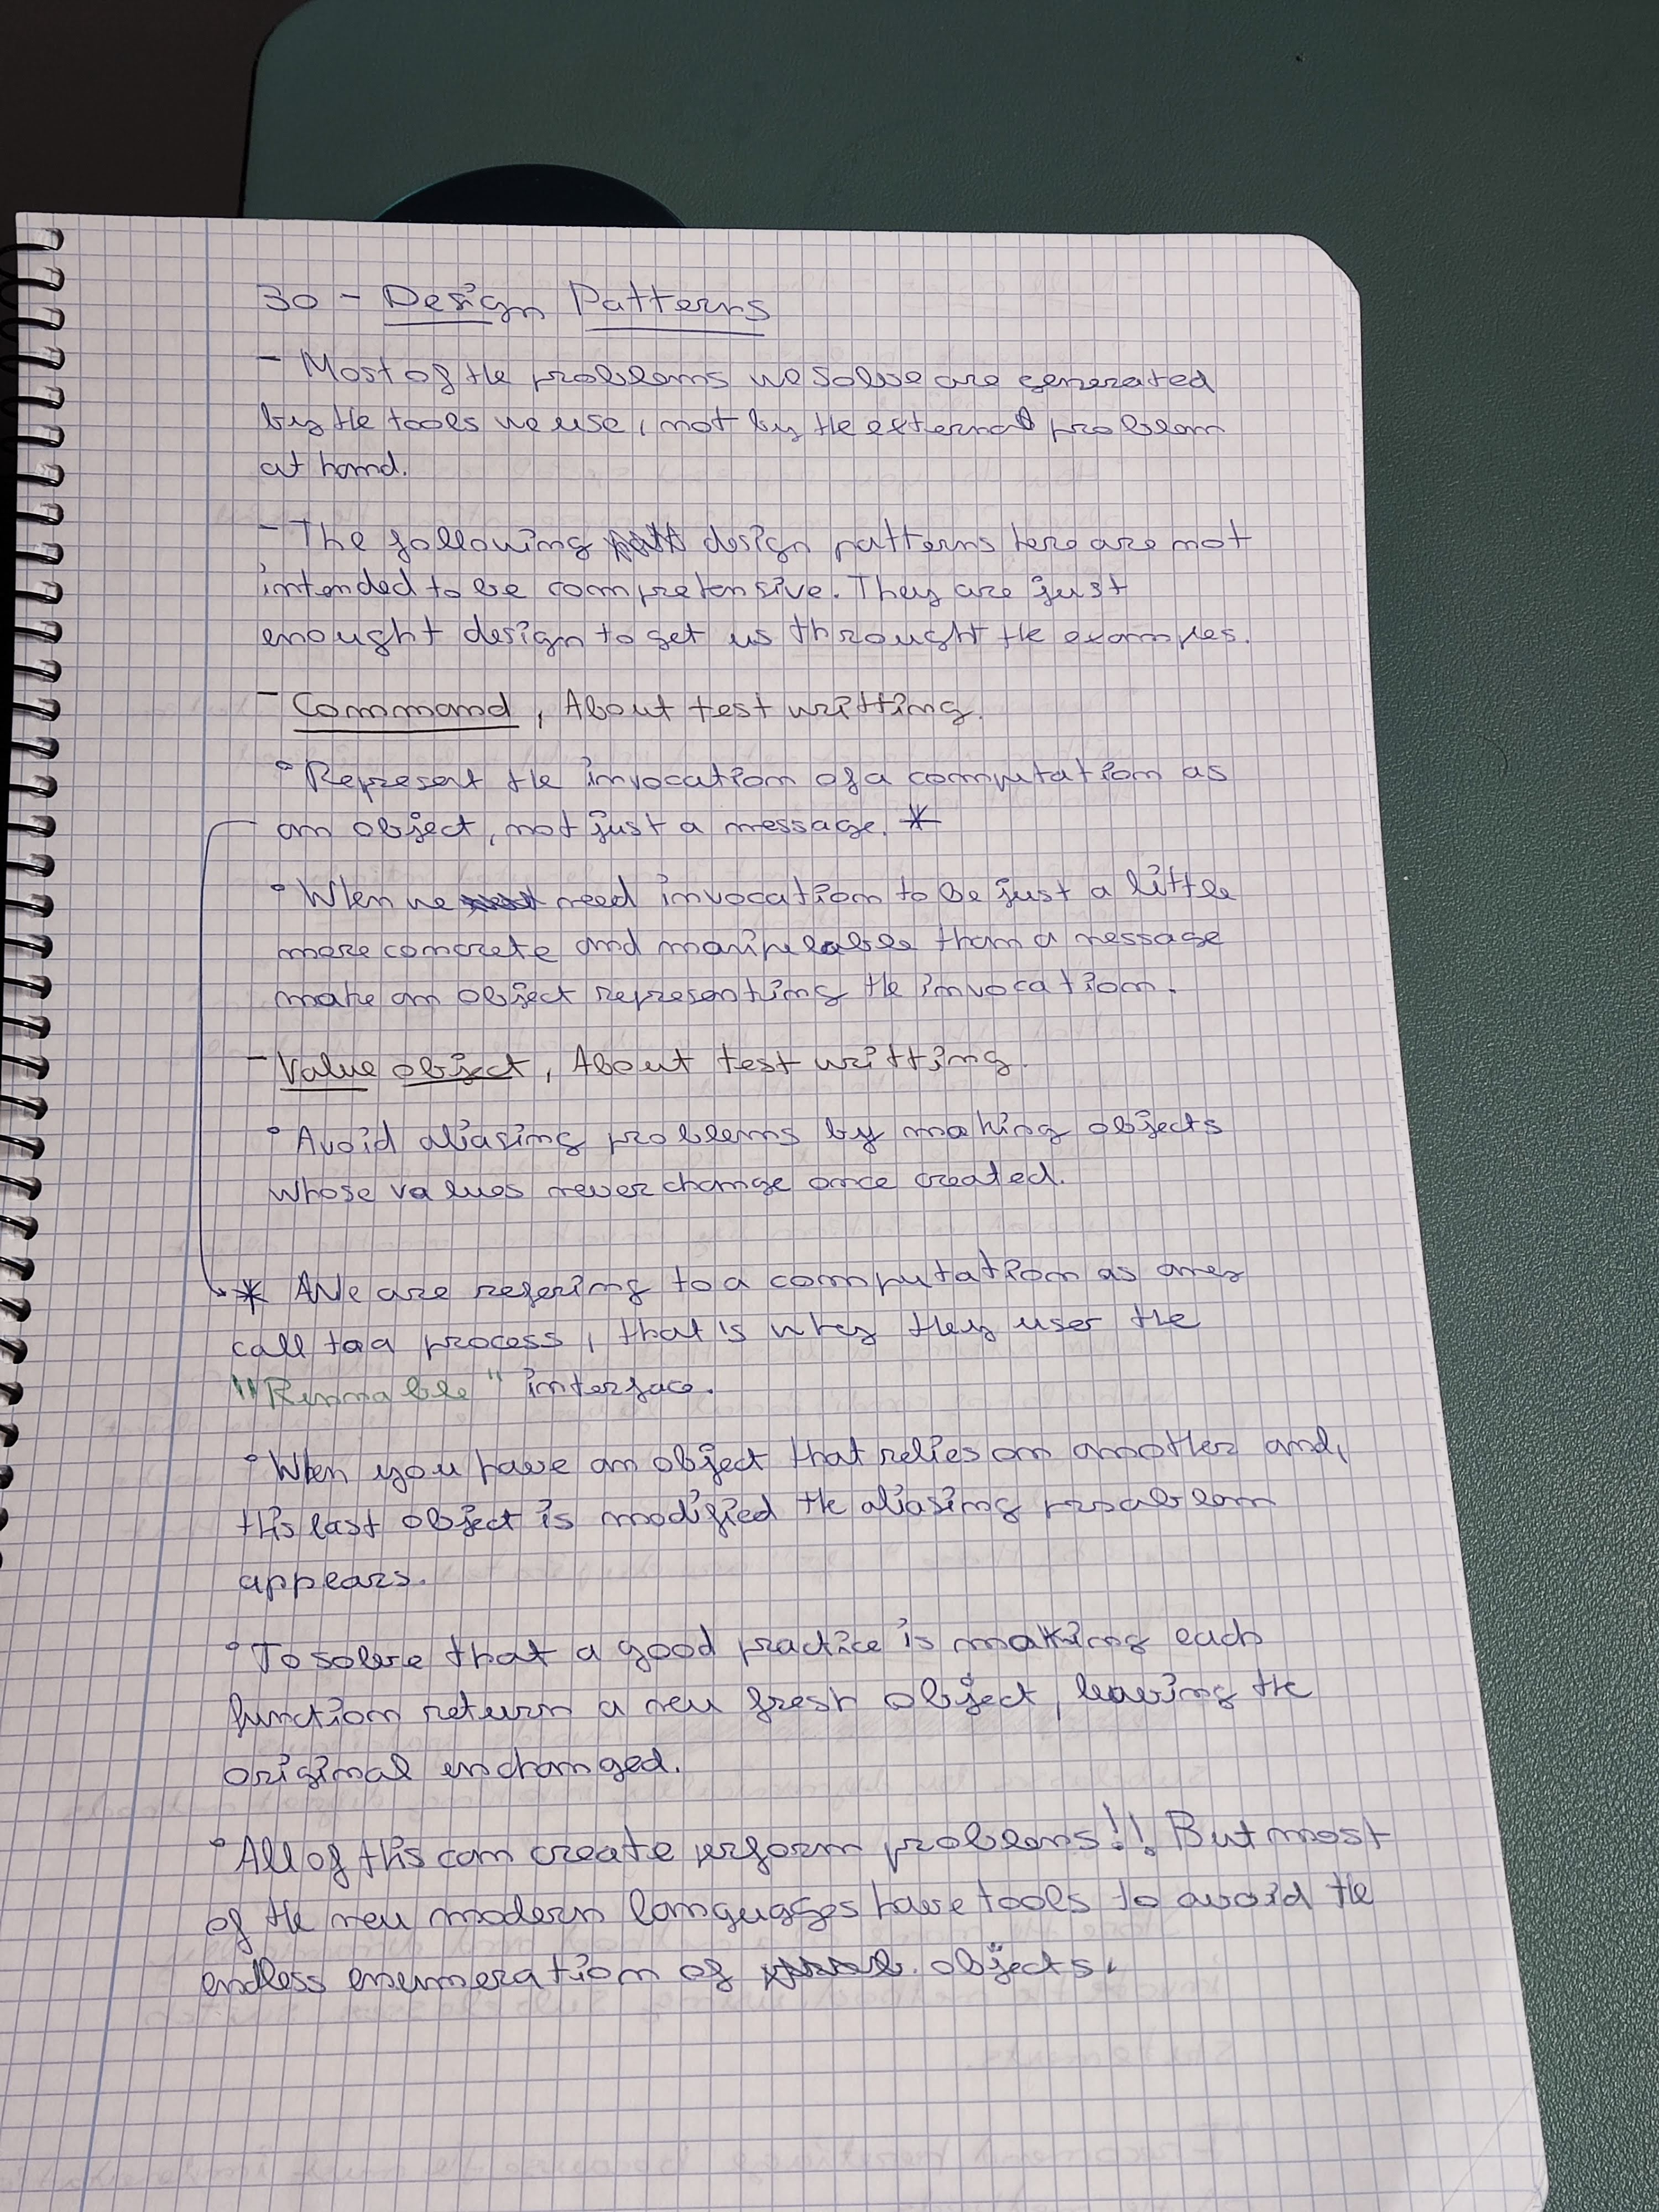 30 - Design Patterns
- Most of the problems we solve are generated
by the tools we use, not by the external problem
at hand.
- The following design patterns here are not
intended to be comprehensive. They are just
enought design to get us throught the examples.
- Command, About test writting.
° Represent the invocation of a computation as
an object, not just a message. *
° When we need invocation to be just a little
more concrete and manipulable than a message
make an object representing the invocation.
- Value object, About test writting.
° Avoid aliasing problems by making objects
whose values never change once created.
* We are refering to a computation as any
call to a process, that's why they user the
"Runnable" interface.
° When you have an object that relies on another and,
this last object is modified the aliasing problem
appears.
° To solve that a good practice is making each
function return a new fresh object, leaving the
original unchanged.
° All of this can create perform problems!! But most
of the new modern languages have tools to avoid the
endless enumeration of objects.